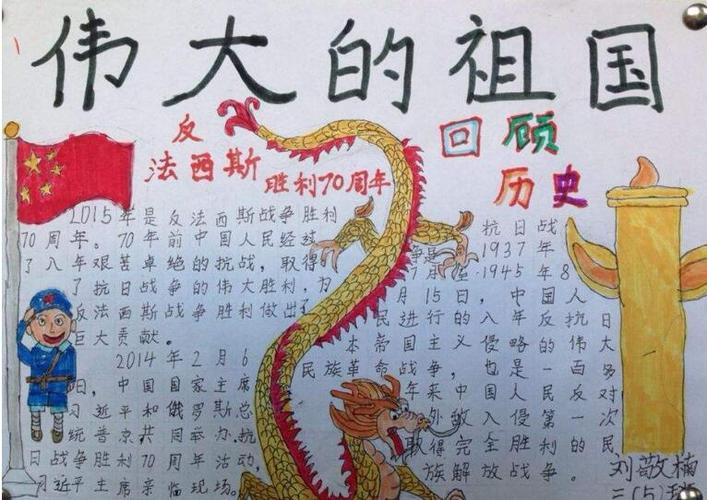 伟大的祖国
反
法西斯
胜利70周年
回顾
历史
2015年是反法西斯战争胜利
70周年。70年前中国人民经
了八年艰苦卓绝的抗战，取得
了抗日战争的伟大胜利，为
反法西斯战争胜利做出了
巨大贡献。
2014年2月6
日，中国国家主席
习近平和俄罗斯总
统普京共同举办抗
日战争胜利70周年活动，
习近平主席亲临现场。
抗日战
争是1937年
7月至1945年8
月15日，中国人
民进行的八年反抗日
本帝国主义侵略的伟大
民族革命战争，也是一百多
年来中国人民反对
外敌入侵第一次
取得完全胜利的民
族解放战争。
刘敬楠